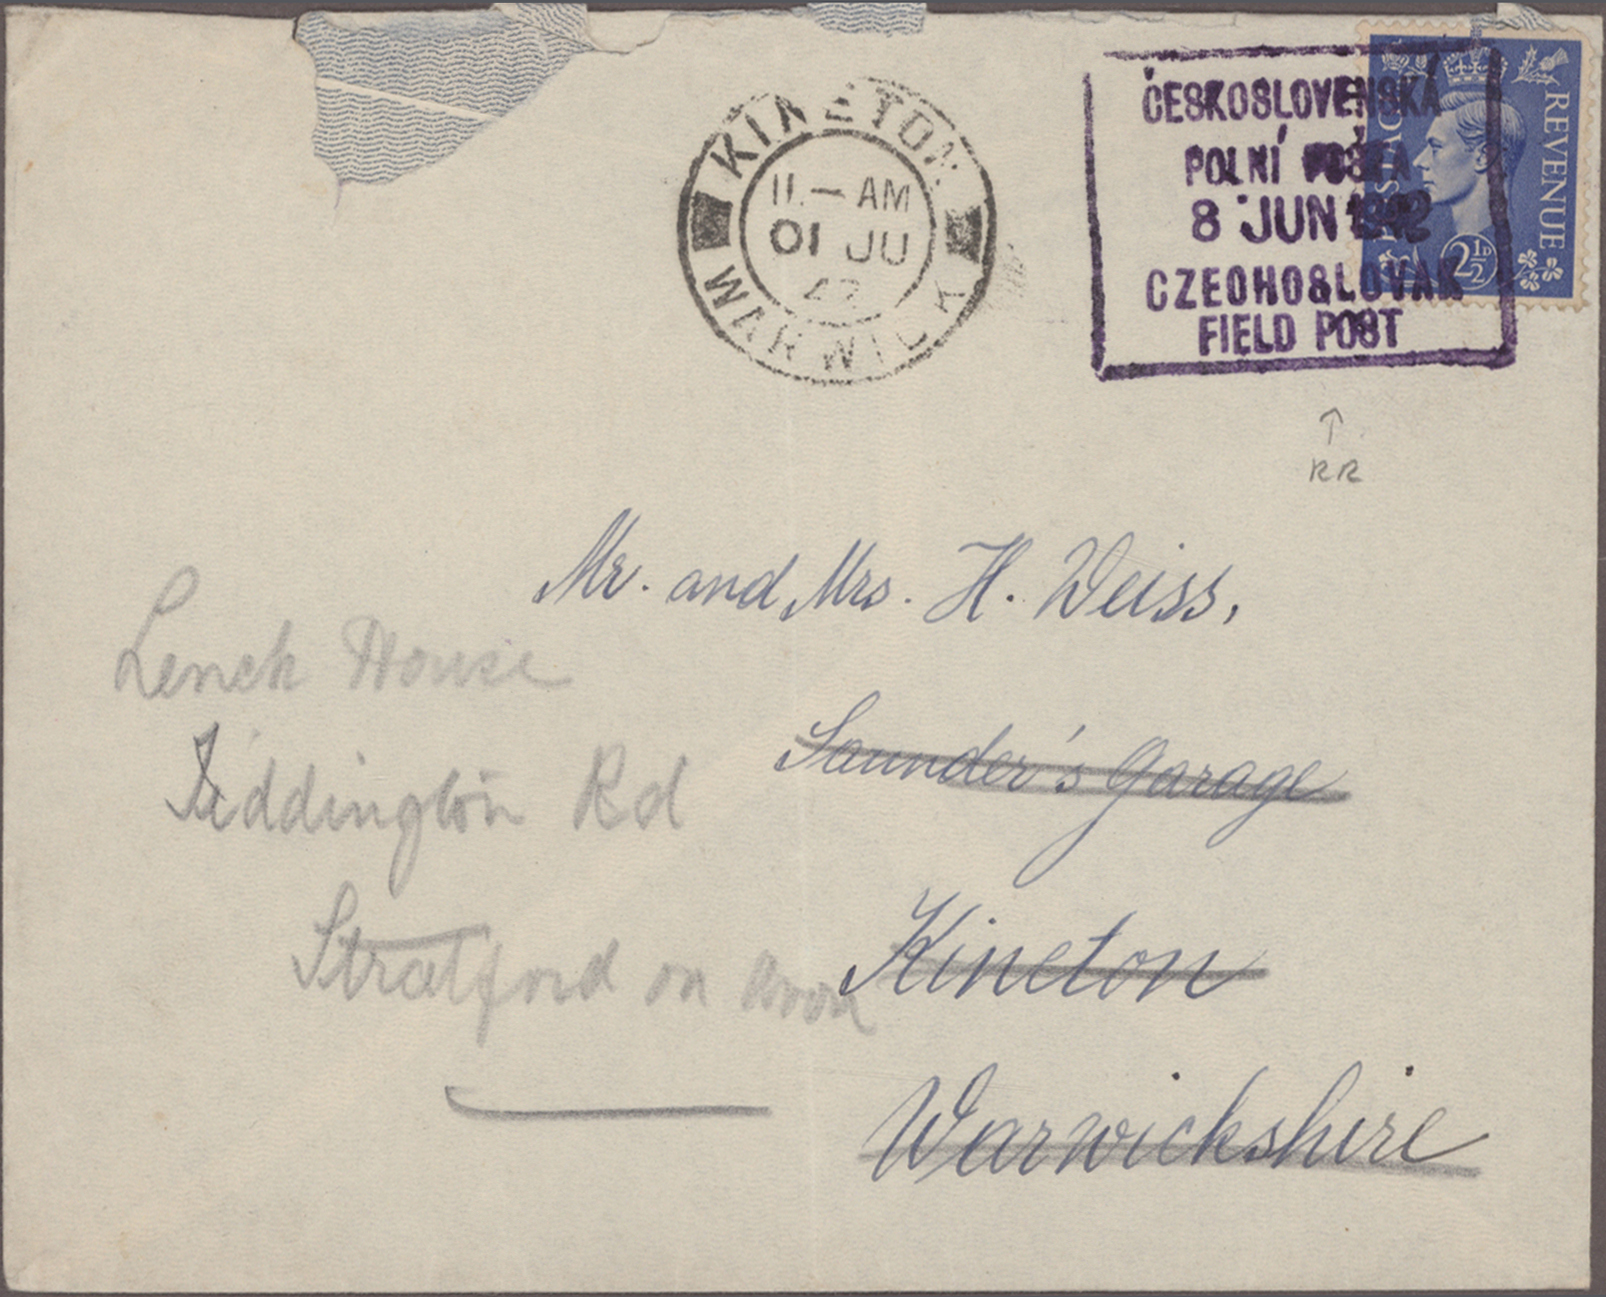 KINETON
11.— AM
01 JU
42
WARWICK
ČESKOSLOVENSKÁ
POLNÍ POŠTA
8 JUN 1942
CZECHOSLOVAK
FIELD POST
REVENUE
2½D
↑
RR
Mr. and Mrs. H. Weiss,
Saunder's Garage
Kineton
Warwickshire
Lench House
Tiddington Rd
Stratford on Avon